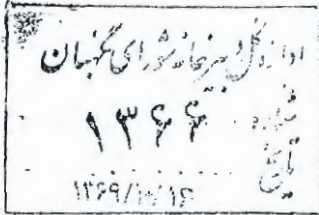 اداره کل دبیرخانه شورای نگهبان
شماره ۱۳۶۶
تاریخ ۱۳۶۹/۱۰/۱۶